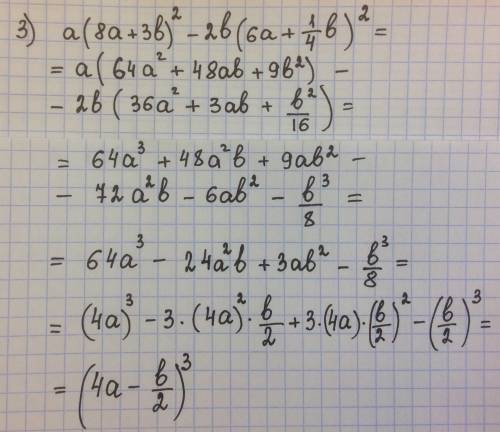 3) a(8a+3b)² - 2b(6a+1/4 b)² =
= a(64a² + 48ab + 9b²) -
- 2b(36a² + 3ab + b²/16) =
= 64a³ + 48a²b + 9ab² -
- 72a²b - 6ab² - b³/8 =
= 64a³ - 24a²b + 3ab² - b³/8 =
= (4a)³ - 3·(4a)²·b/2 + 3·(4a)·(b/2)² - (b/2)³ =
= (4a - b/2)³